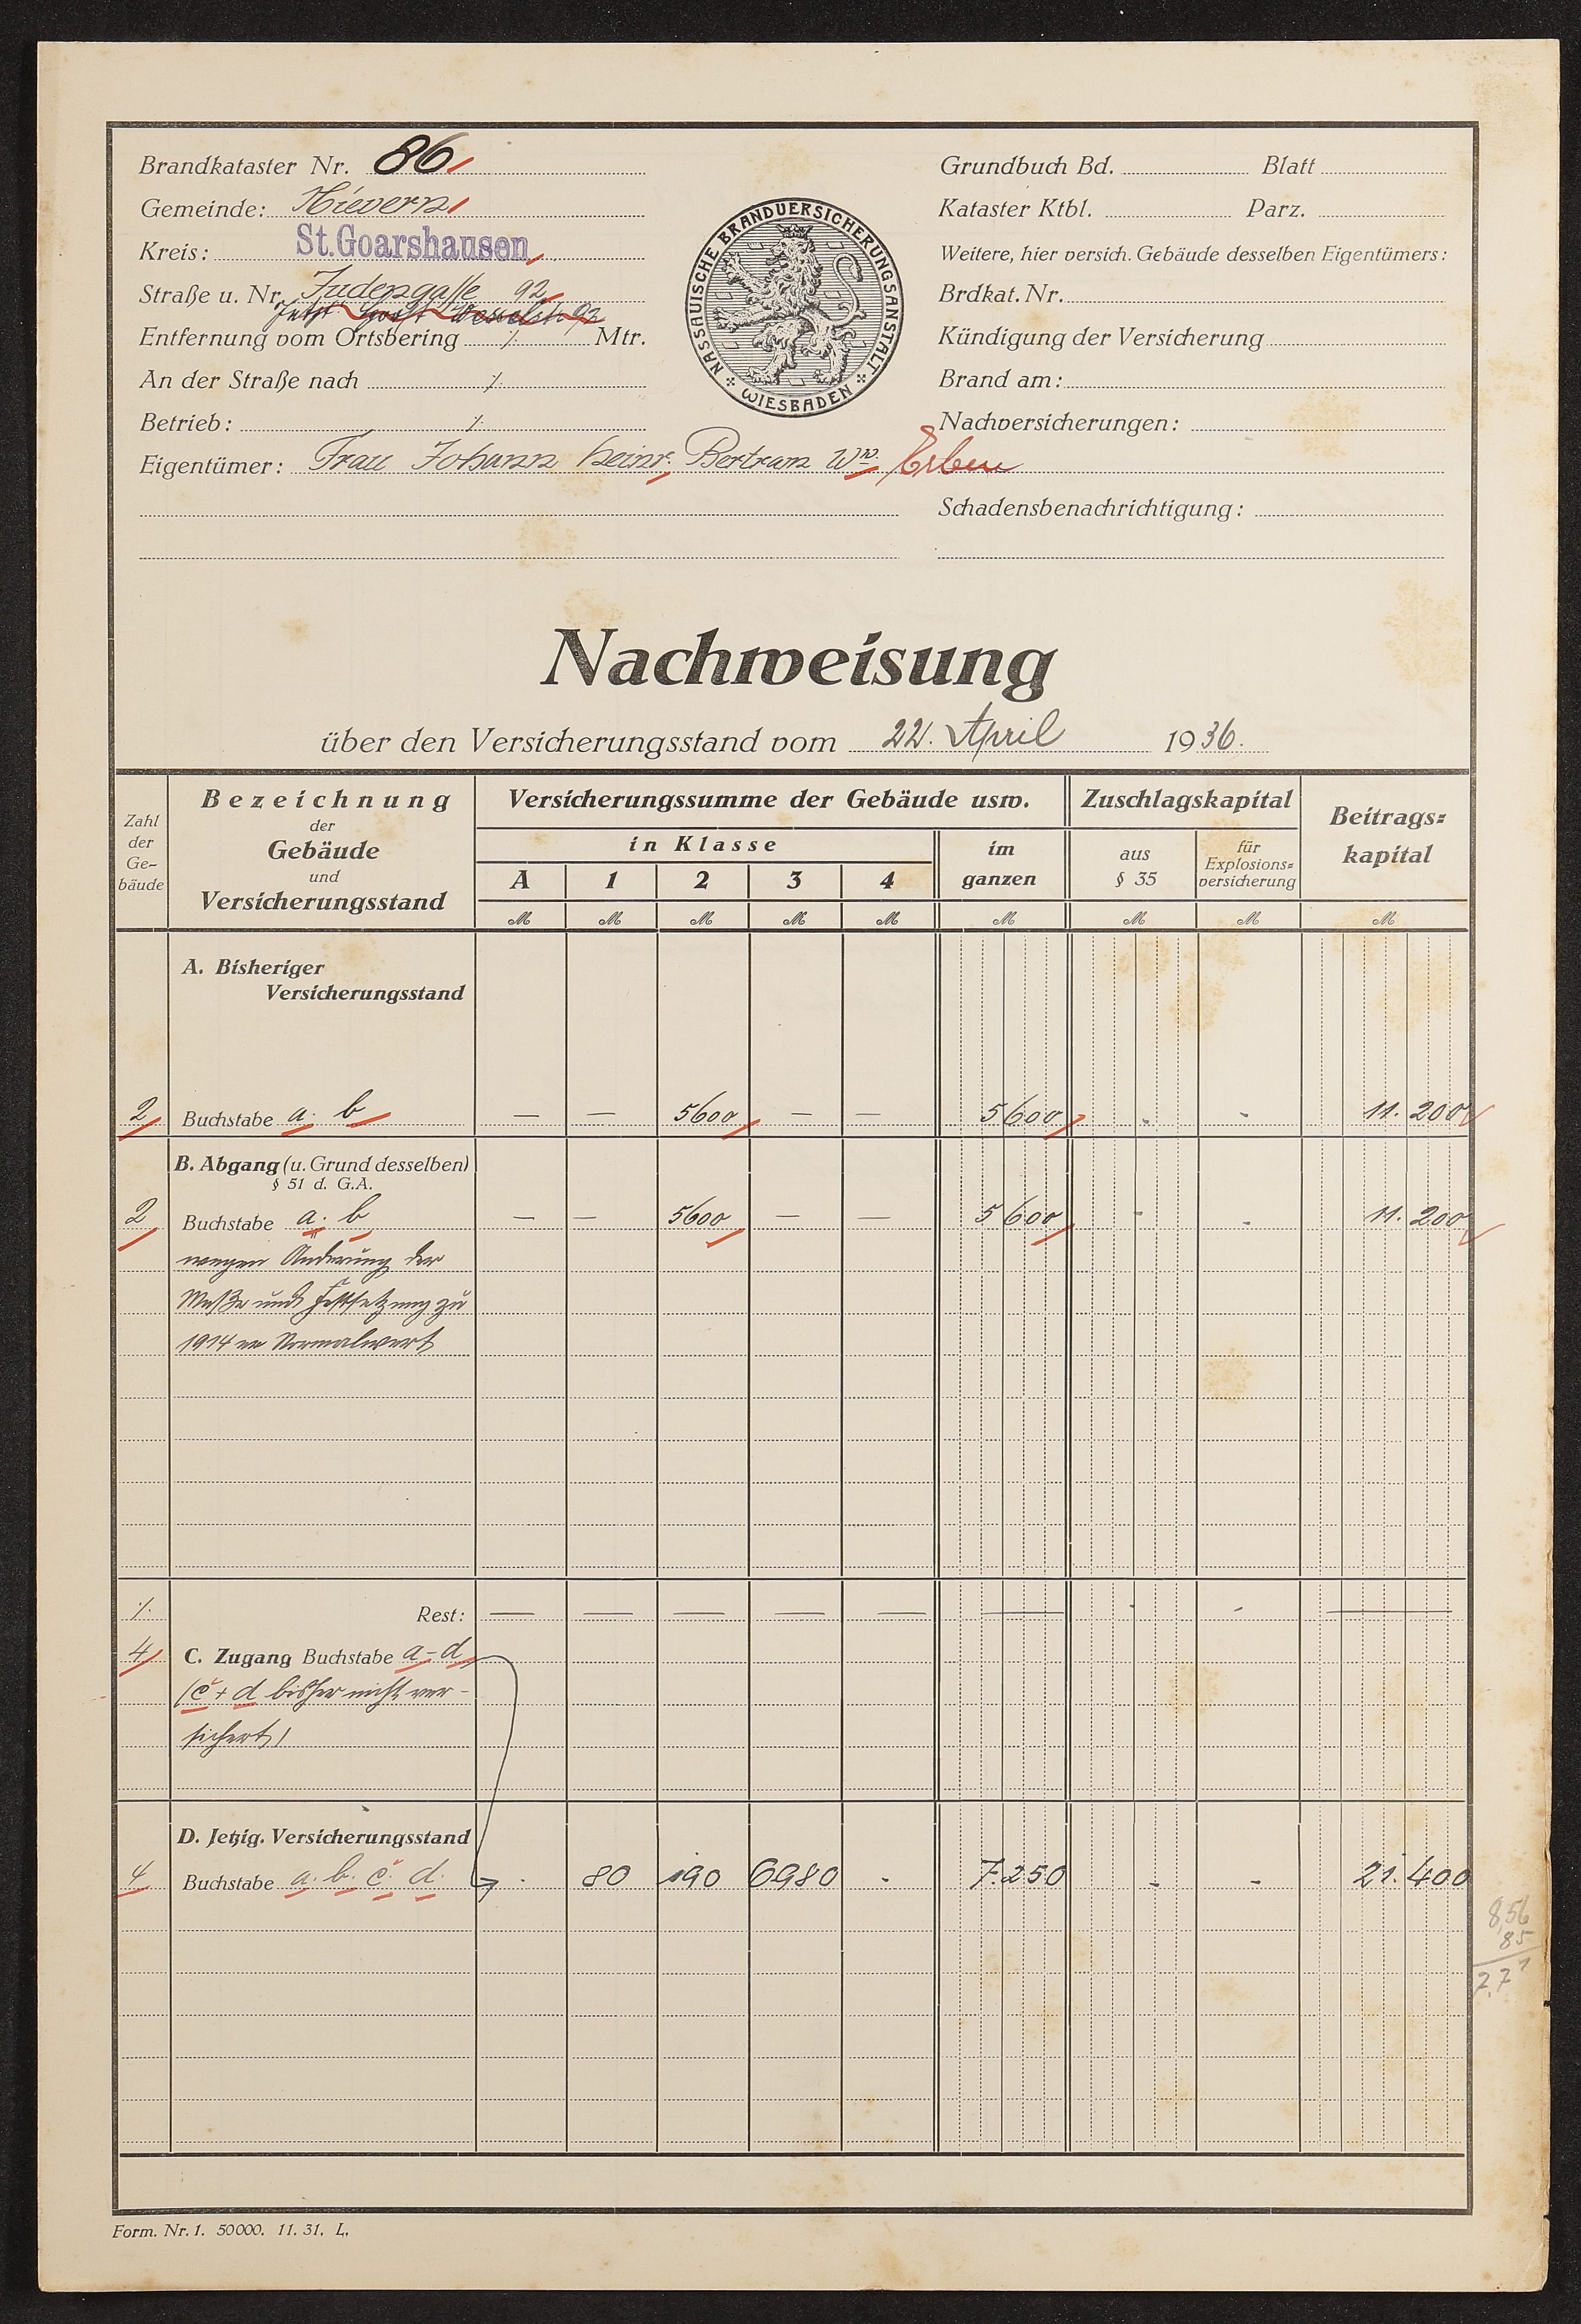 Brandkataster Nr. 86
Gemeinde: Nievern
Kreis: St. Goarshausen
Straße u. Nr. Judengasse 92
jetzt Horst Wesselstr 92
Entfernung vom Ortsbering ./. Mtr.
An der Straße nach ./.
Betrieb: ./.
Eigentümer: Frau Johann Heinr. Bertram Ww. Erben
NASSAUISCHE BRANDVERSICHERUNGSANSTALT
WIESBADEN
Grundbuch Bd. Blatt
Kataster Ktbl. Parz.
Weitere, hier versich. Gebäude desselben Eigentümers:
Brdkat. Nr.
Kündigung der Versicherung
Brand am:
Nachversicherungen:
Schadensbenachrichtigung:
Nachweisung
über den Versicherungsstand vom 22. April 1936.
Zahl der Ge-bäude
Bezeichnung der Gebäude und Versicherungsstand
Versicherungssumme der Gebäude usw.
in Klasse
A 1 2 3 4
im ganzen
Zuschlagskapital
aus § 35
für Explosions=versicherung
Beitrags=kapital
M M M M M M M M M
A. Bisheriger
Versicherungsstand
2 Buchstabe a. b — — 5600 — — 5600 - - 11.200
B. Abgang (u. Grund desselben)
§ 51 d. G.A.
2 Buchstabe a. b — — 5600 — — 5600 - - 11.200
wegen Änderung der
Maße und Festsetzung zu
1914er Normalwert
./. Rest: — — — — — — - - —
4 C. Zugang Buchstabe a-d
(c + d bisher nicht ver-
sichert)
D. Jetzig. Versicherungsstand
4 Buchstabe a. b. c. d. - 80 190 6980 - 7.250 - - 21.400
8,56
85
7,71
Form. Nr. 1. 50000. 11. 31. L.